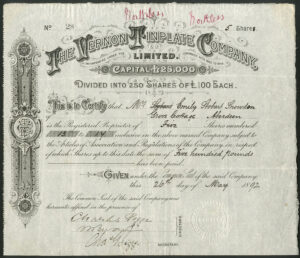 Worthless Worthless
No 28 5 Shares.
THE VERNON TINPLATE COMPANY,
LIMITED.
CAPITAL £25,000
DIVIDED INTO 250 SHARES OF £100 EACH.
This is to Certify that Mrs Emily Robert
Grove Cottage Aberdeen
is the Registered Proprietor of Five Shares numbered
10 to 14 inclusive in the above named Company, subject to
the Articles of Association and Regulations of the Company, in respect
of which Shares up to this date the sum of Five hundred pounds
has been paid.
GIVEN under the Common Seal of the said Company
this 26th day of May 1892
The Common Seal of the said Company was
hereunto affixed in the presence of
Charles
DIRECTORS
SECRETARY